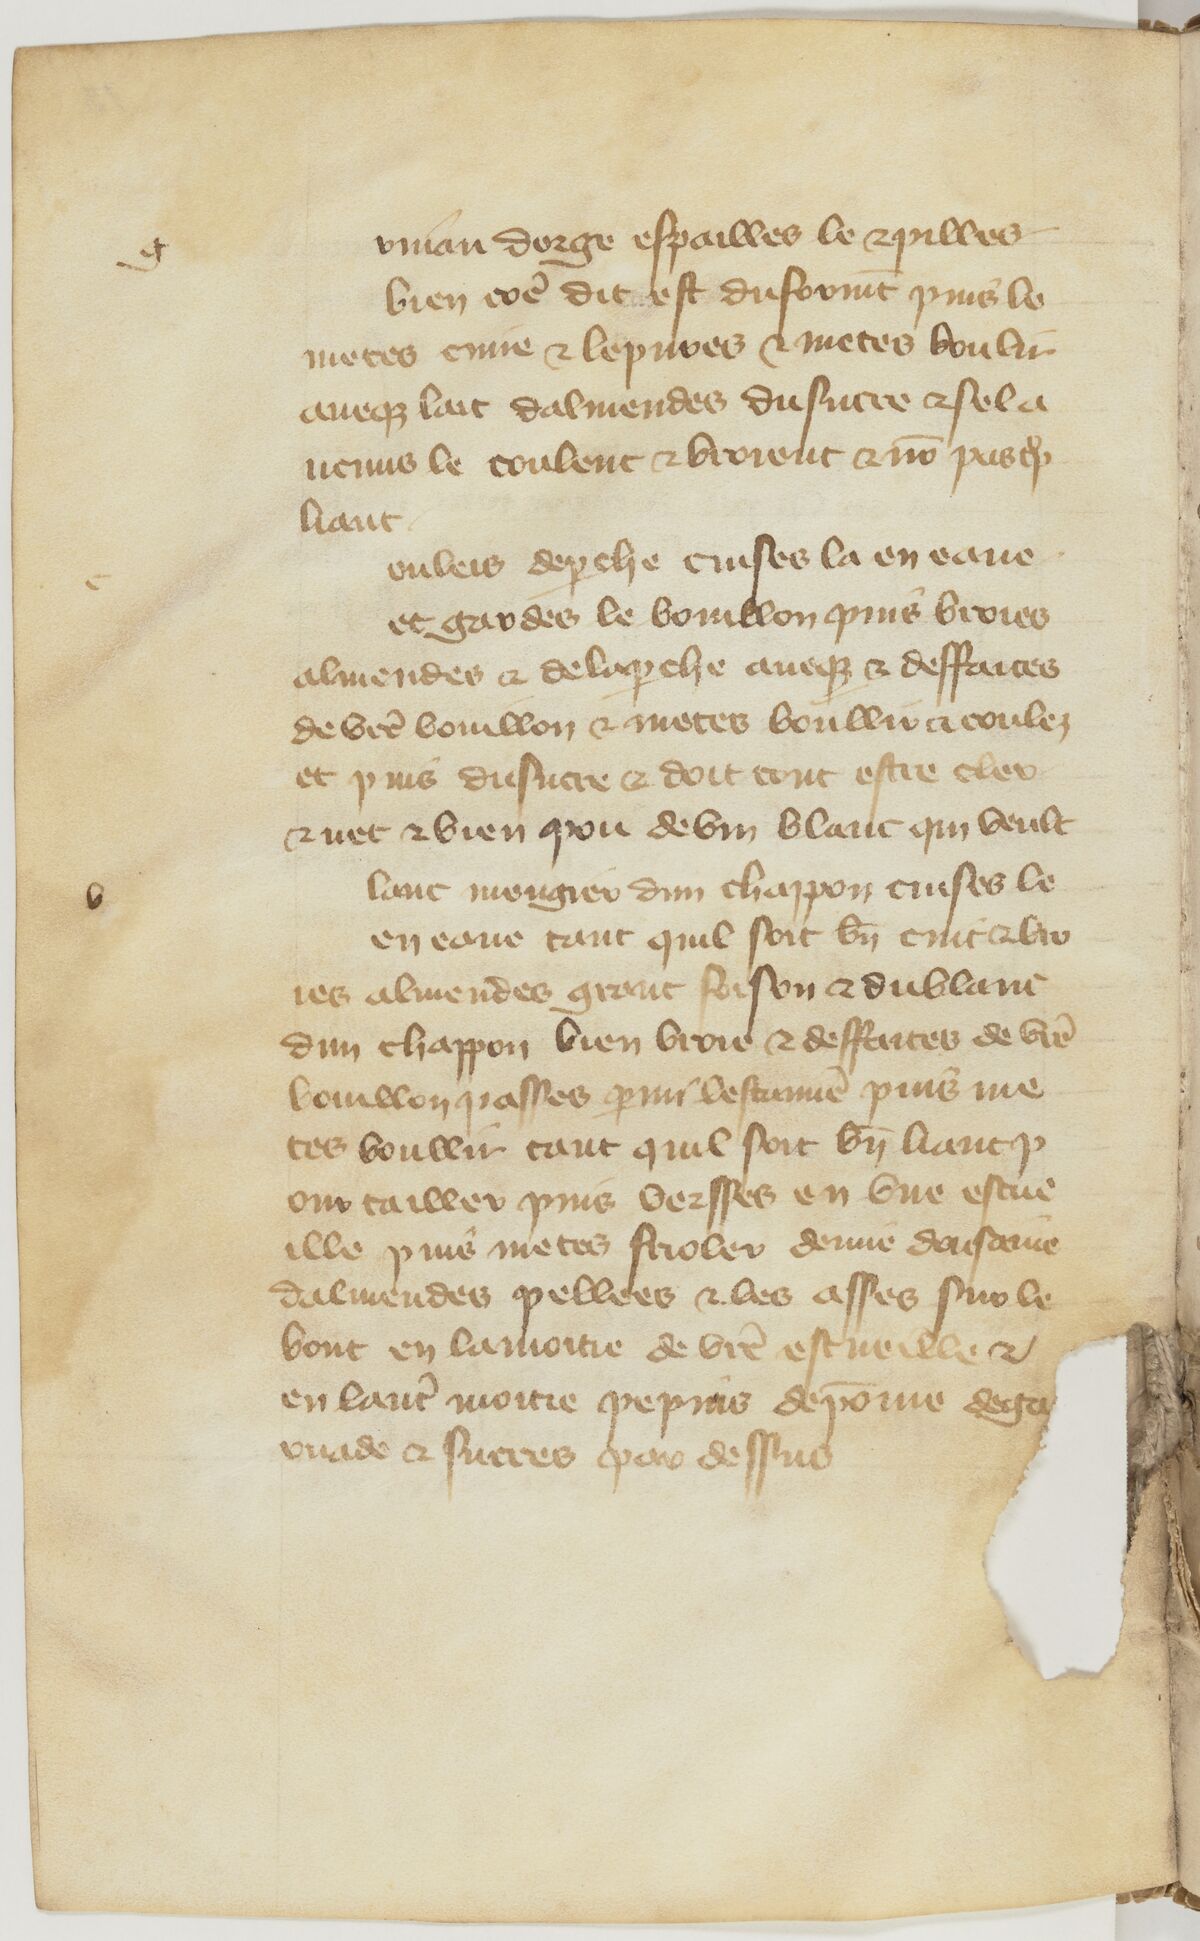 g
ruiau dorge espailles le & pilles
bien cōe dit est du formēt puis le
metes cuire & le pures & metes boulir
aueqз lait dalmendes du sucre & sel a
ucuns le coulent & broient & nō pas trop
liant
c
ouleis de perche cuises la en eaue
et gardes le bouillon puis broies
almendes & de la perche aueqз & deffaites
de vr̄e bouillon & metes boullir & coulez
et puis du sucre & doit tout estre cler
& net & bien pou de vin blanc qui veult
b
lanc mengier dun chappon cuises le
en eaue tant quil soit bn̄ cuit & bro
ies almendes grant foison & du blanc
dun chappon bien broie & deffaites de vr̄e
bouillon passes parmi lestamine puis me
tes boullir tant quil soit bn̄ liant p
our tailler puis versses en vne escue
ille puis metes frioler demie dousaine
dalmendes pellees & les asses sur le
bout en la moitie de vr̄e escueille &
en laut̄ moitie pepins de pōme de ga
rnade & sucres par dessus